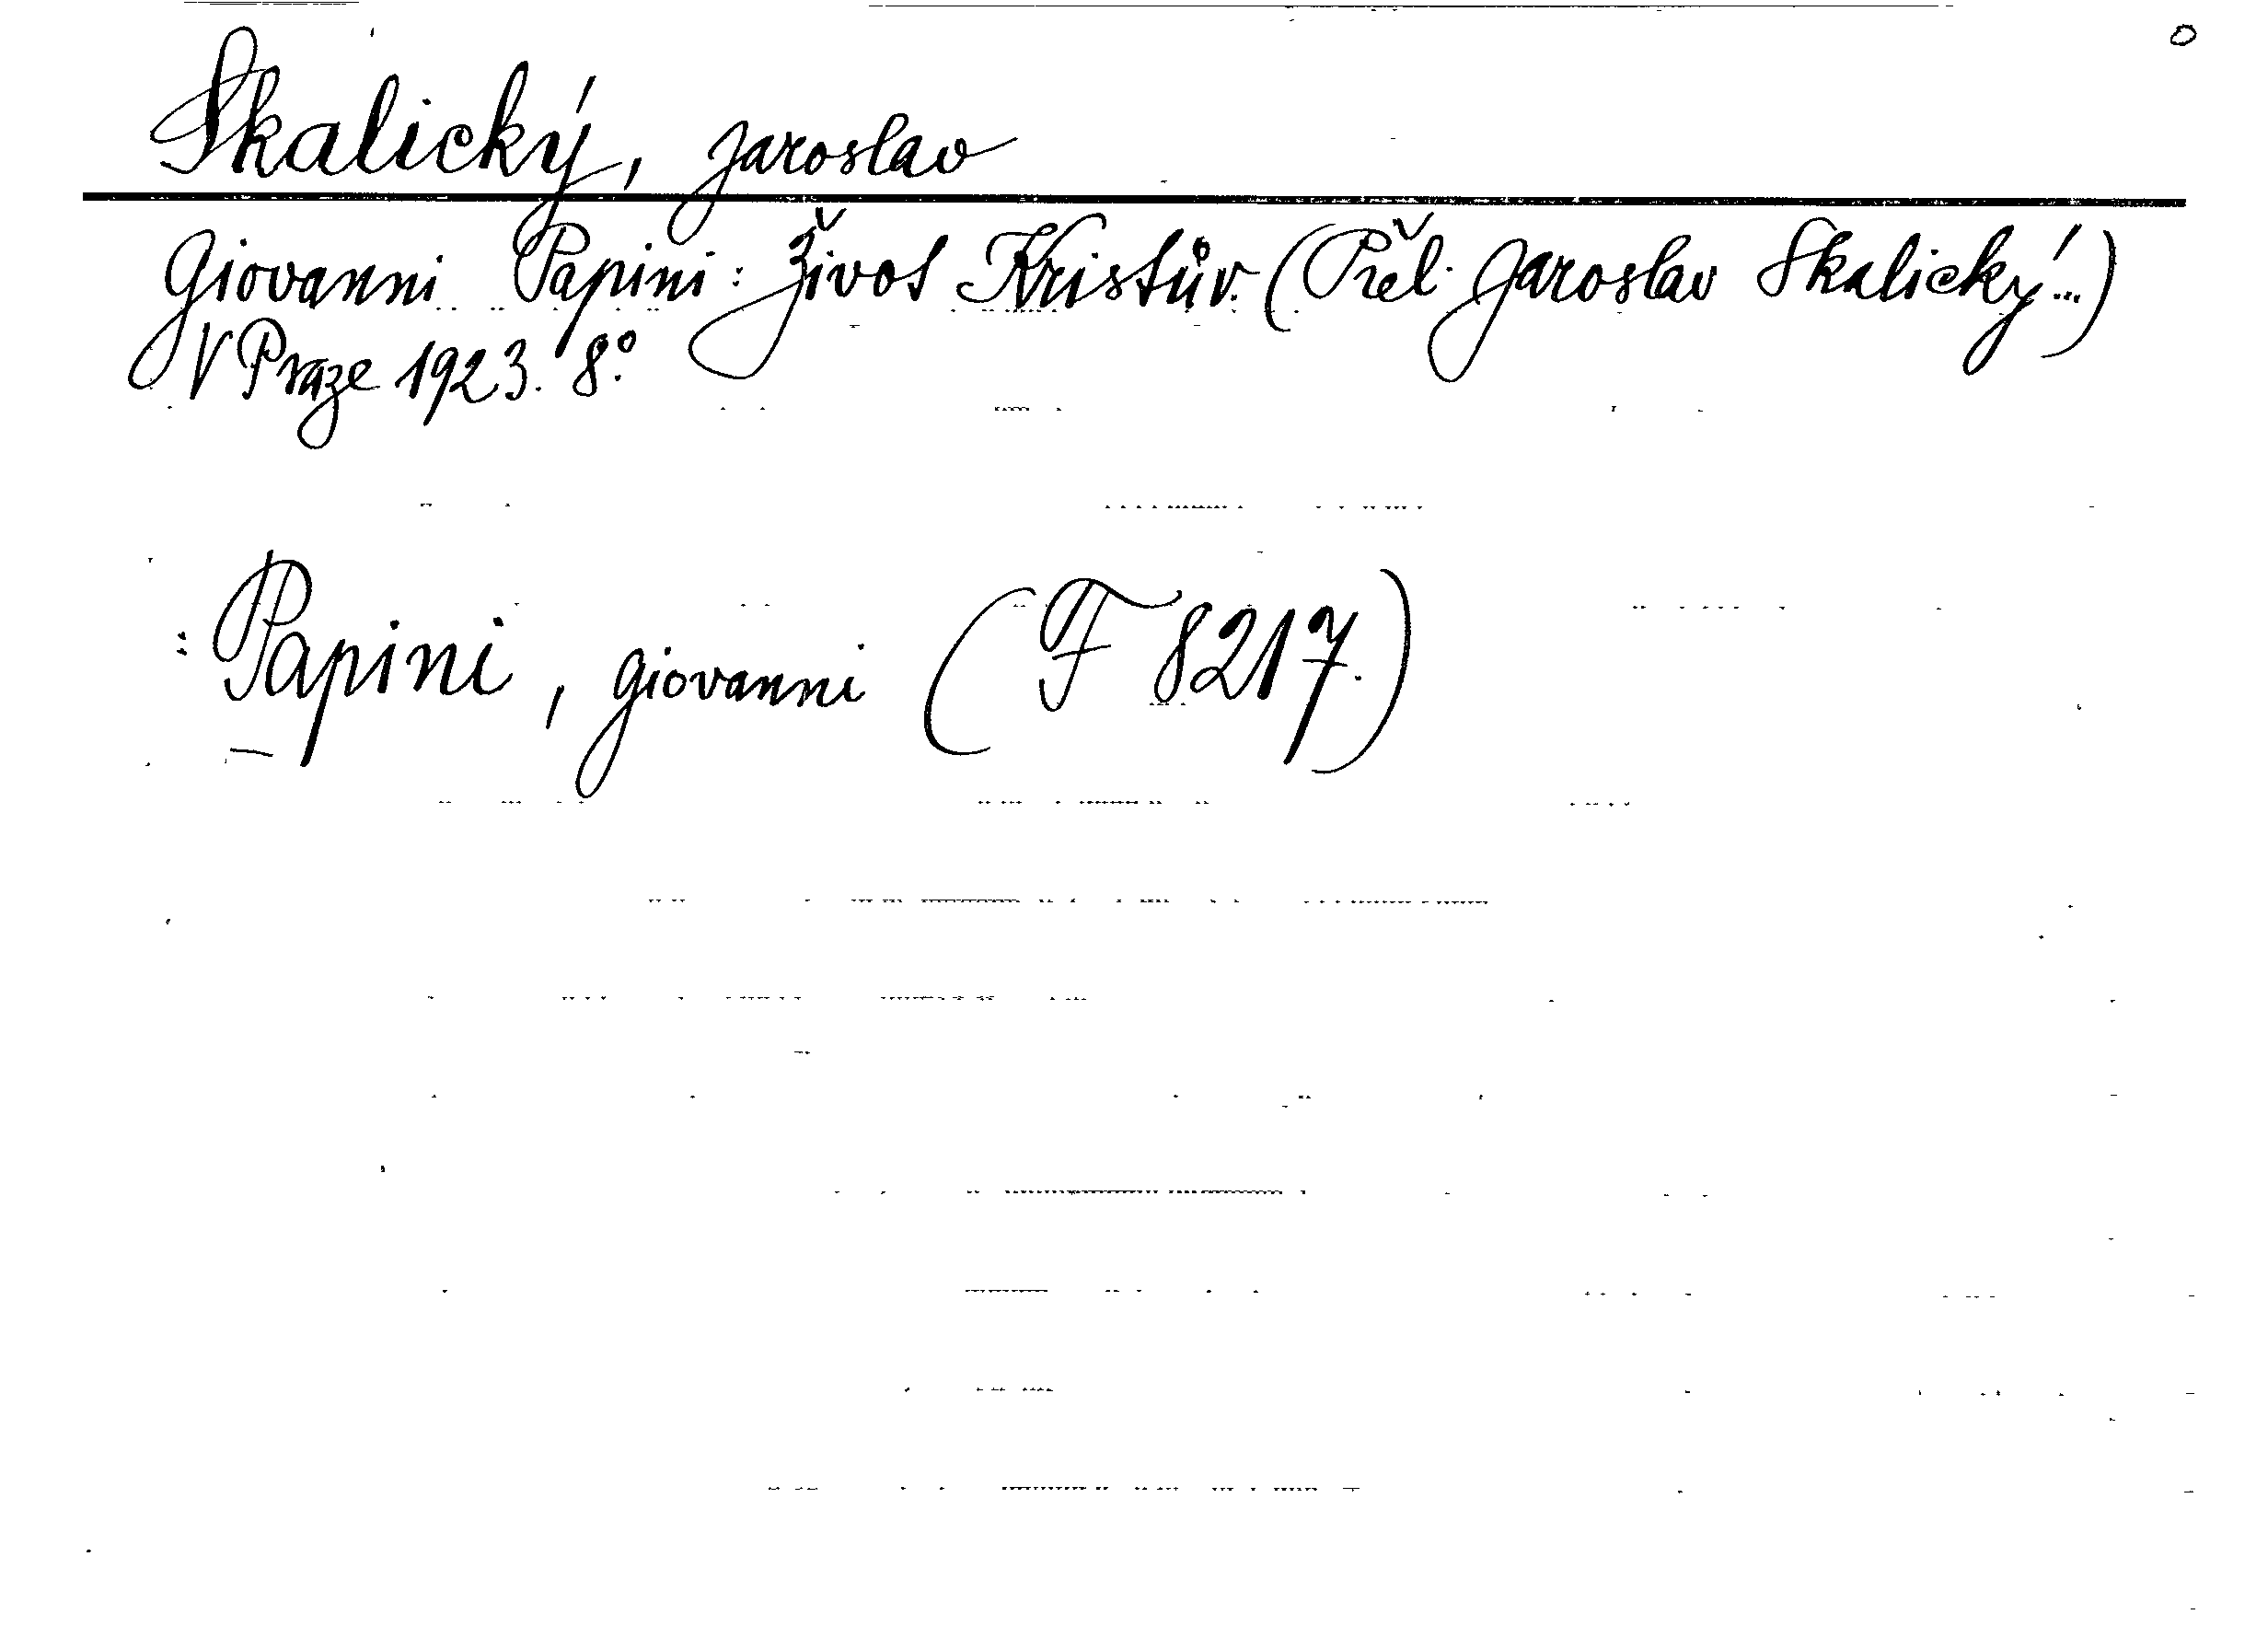 0
Skalický, Jaroslav
Giovanni Papini: Život Kristův. (Přel. Jaroslav Skalický...)
V Praze 1923. 8°.
: Papini, Giovanni (F 8217.)